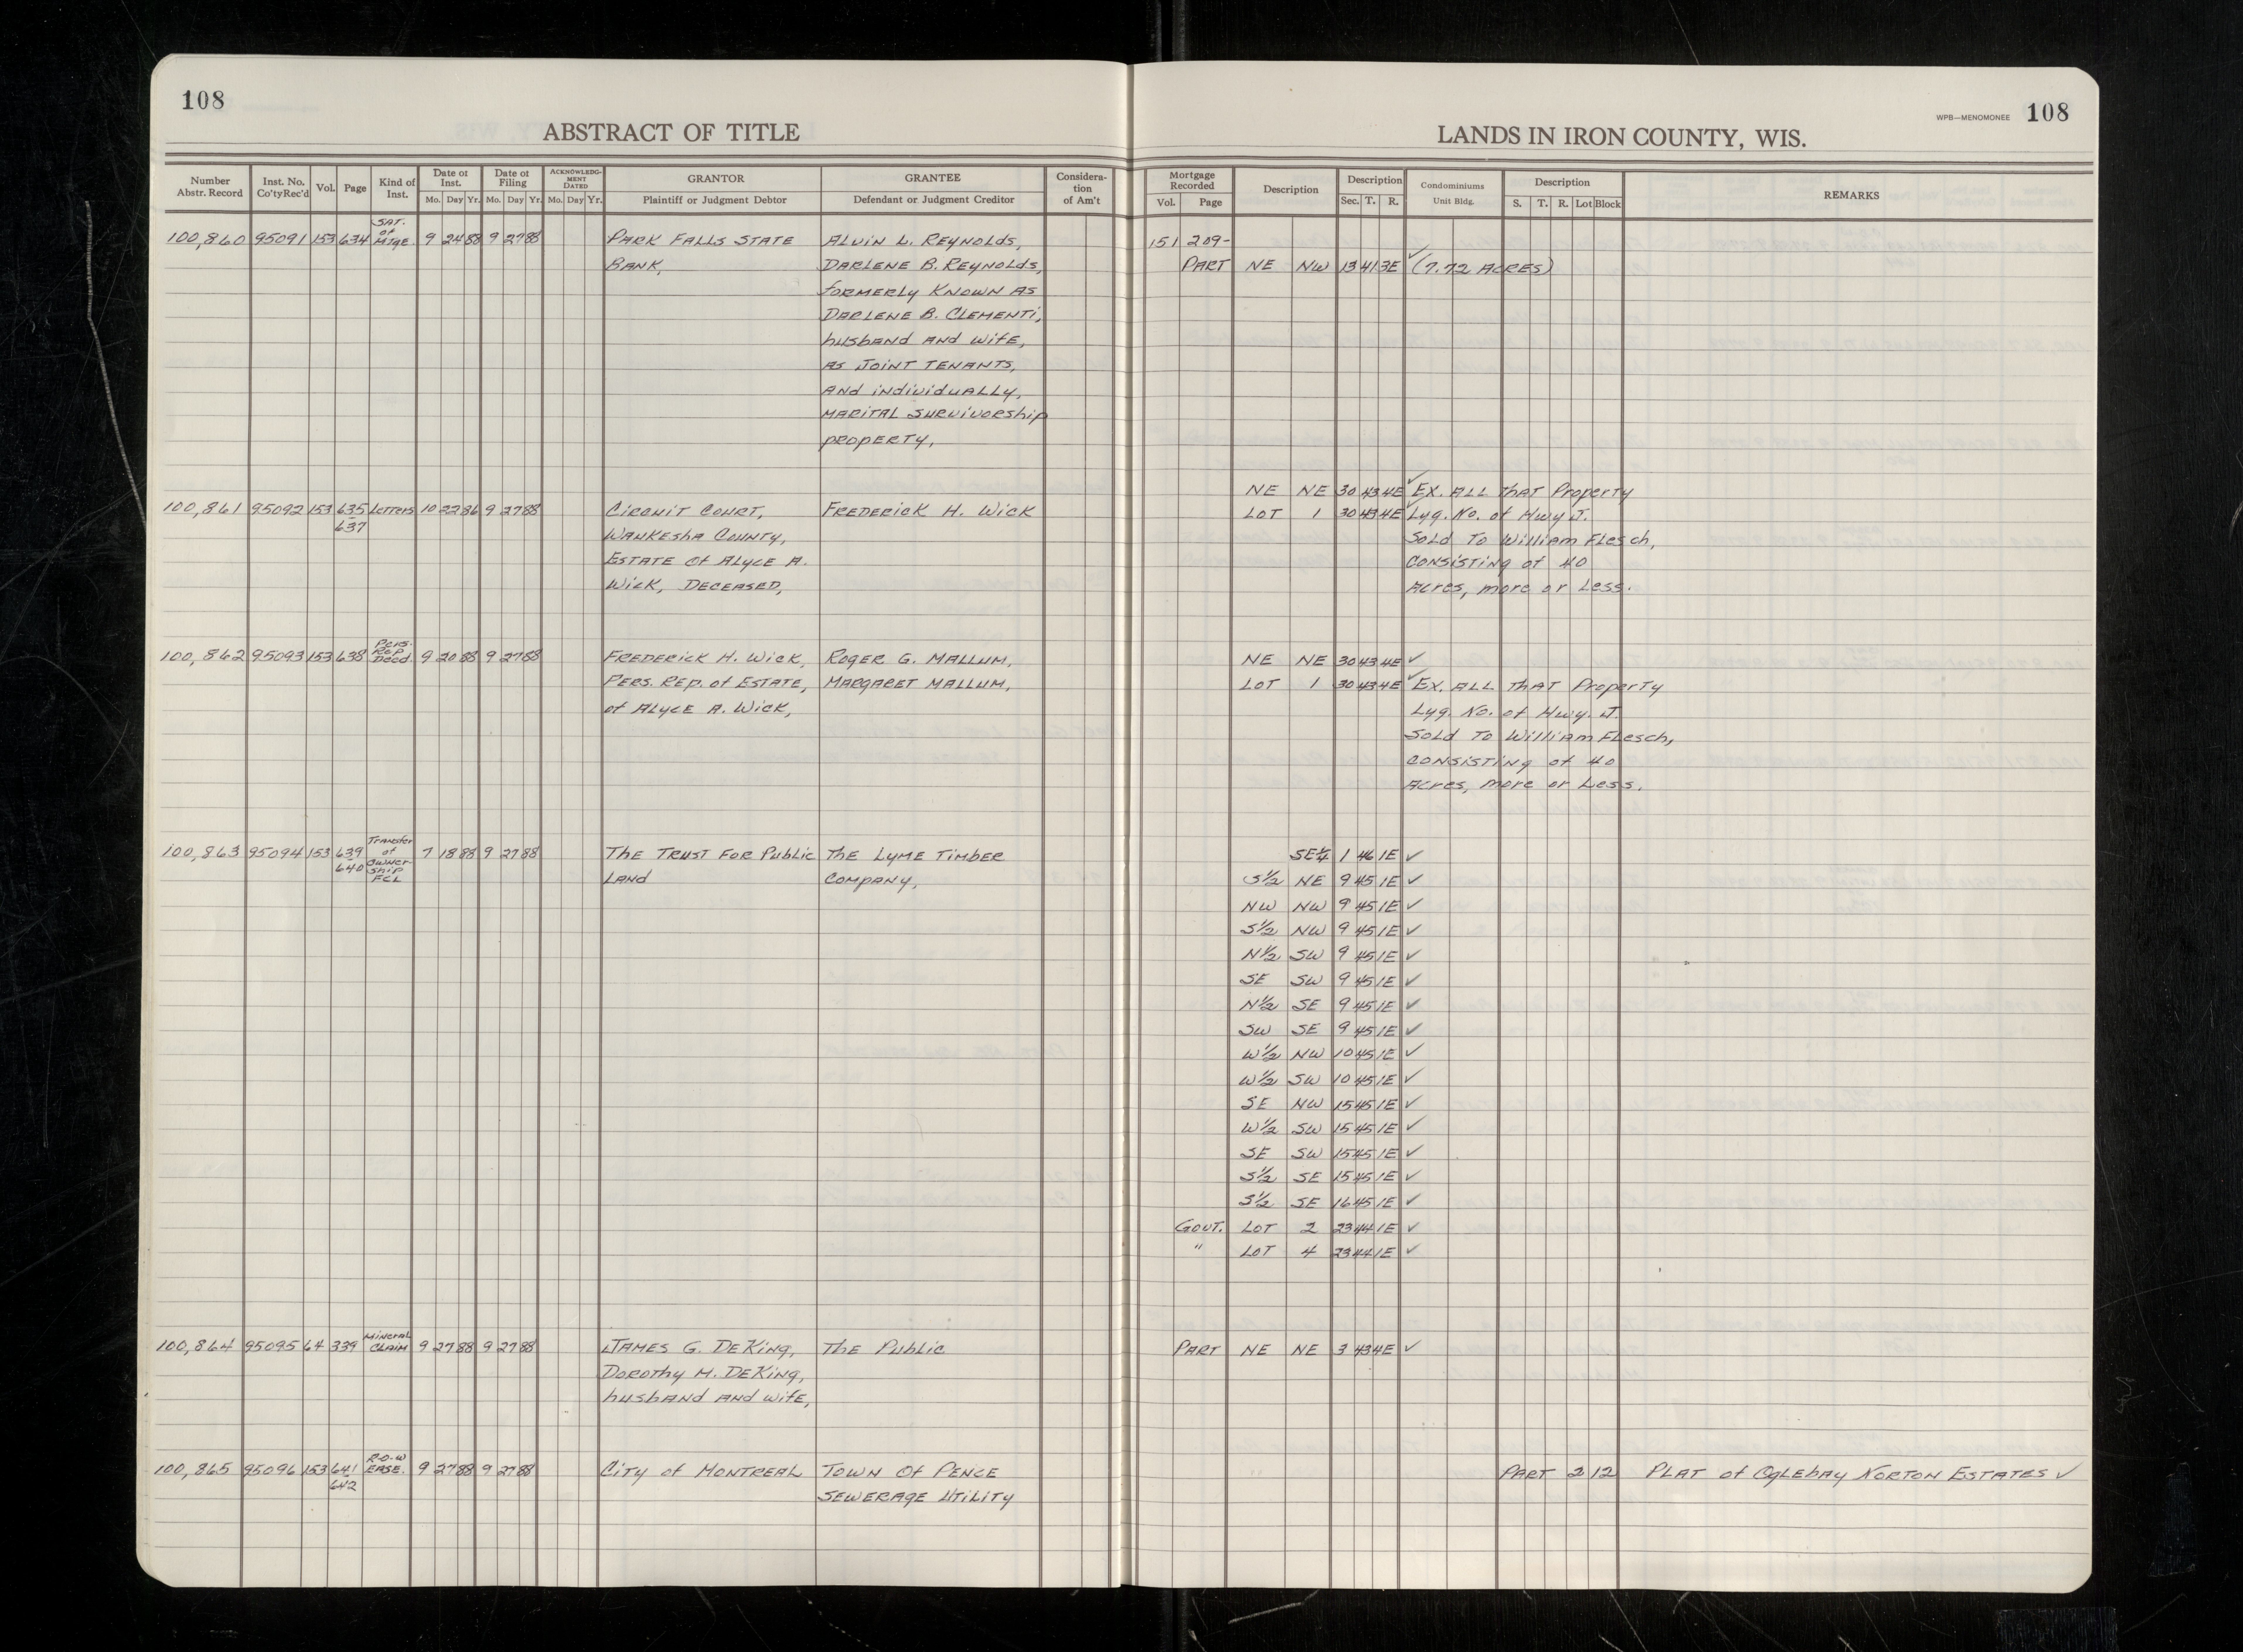 108
ABSTRACT OF TITLE
LANDS IN IRON COUNTY, WIS.
WPB—MENOMONEE 108
Number Abstr. Record | Inst. No. Co'ty Rec'd | Vol. | Page | Kind of Inst. | Date of Inst. Mo. Day Yr. | Date of Filing Mo. Day Yr. | ACKNOWLEDGMENT DATED Mo. Day Yr. | GRANTOR Plaintiff or Judgment Debtor | GRANTEE Defendant or Judgment Creditor | Consideration of Am't | Mortgage Recorded Vol. Page | Description | Description Sec. T. R. | Condominiums Unit Bldg. | Description S. T. R. Lot Block | REMARKS
100,860 95091 153 634 SAT. of MTGE. 9 24 88 9 27 88 PARK FALLS STATE ALVIN L. REYNOLDS, 151 209-
BANK, DARLENE B. REYNOLDS, PART NE NW 13 41 3E ✓ (7.72 ACRES)
FORMERLY KNOWN AS
DARLENE B. CLEMENTI,
husband AND WIFE,
AS JOINT TENANTS,
AND INDIVIDUALLY,
MARITAL SURVIVORSHIP
PROPERTY,
NE NE 30 43 4E ✓ EX. ALL THAT Property
100,861 95092 153 635-637 Letters 10 22 86 9 27 88 CIRCUIT COURT, FREDERICK H. WICK LOT 1 30 43 4E ✓ Lyg. No. of Hwy J.
WAUKESHA COUNTY, Sold To William Flesch,
ESTATE of ALYCE A. CONSISTING of 40
WICK, DECEASED, Acres, more or Less.
100,862 95093 153 638 Pers. Rep. Deed. 9 20 88 9 27 88 FREDERICK H. WICK, ROGER G. MALLUM, NE NE 30 43 4E ✓
PERS. REP. of ESTATE, MARGARET MALLUM, LOT 1 30 43 4E ✓ EX. ALL THAT Property
of ALYCE A. WICK, Lyg. No. of Hwy. J.
Sold To William Flesch,
CONSISTING of 40
Acres, more or Less.
100,863 95094 153 639-640 Transfer of Ownership FCL 7 18 88 9 27 88 The TRUST FOR Public The LYME TIMBER SE¼ 1 46 1E ✓
LAND COMPANY, S½ NE 9 45 1E ✓
NW NW 9 45 1E ✓
S½ NW 9 45 1E ✓
N½ SW 9 45 1E ✓
SE SW 9 45 1E ✓
N½ SE 9 45 1E ✓
SW SE 9 45 1E ✓
W½ NW 10 45 1E ✓
W½ SW 10 45 1E ✓
SE NW 15 45 1E ✓
W½ SW 15 45 1E ✓
SE SW 15 45 1E ✓
S½ SE 15 45 1E ✓
S½ SE 16 45 1E ✓
GOVT. LOT 2 23 44 1E ✓
" LOT 4 23 44 1E ✓
100,864 95095 64 339 Mineral CLAIM 9 27 88 9 27 88 JAMES G. DEKING, The Public PART NE NE 3 43 4E ✓
DOROTHY M. DEKING,
husband AND WIFE,
100,865 95096 153 641-642 R-O-W EASE. 9 27 88 9 27 88 CITY of MONTREAL TOWN OF PENCE PART 2 12 PLAT of OGLEBAY NORTON ESTATES ✓
SEWERAGE UTILITY